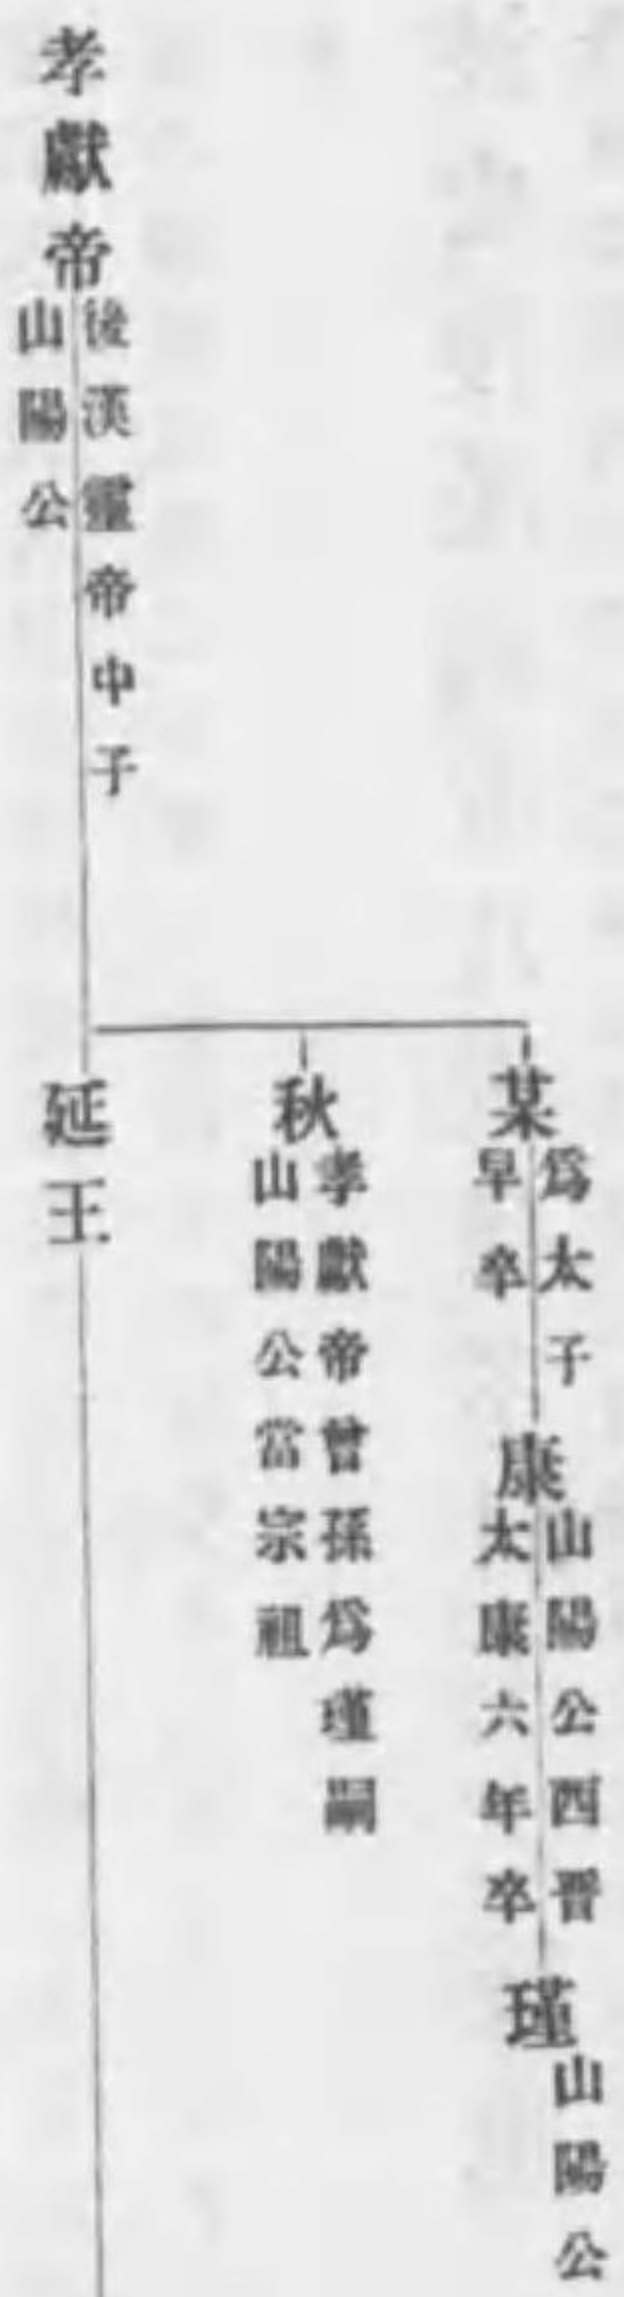 孝獻帝
後漢靈帝中子
山陽公
某
爲太子
早卒
康
山陽公西晋
太康六年卒
瑾
山陽公
秋
孝獻帝曾孫爲瑾嗣
山陽公當宗祖
延王